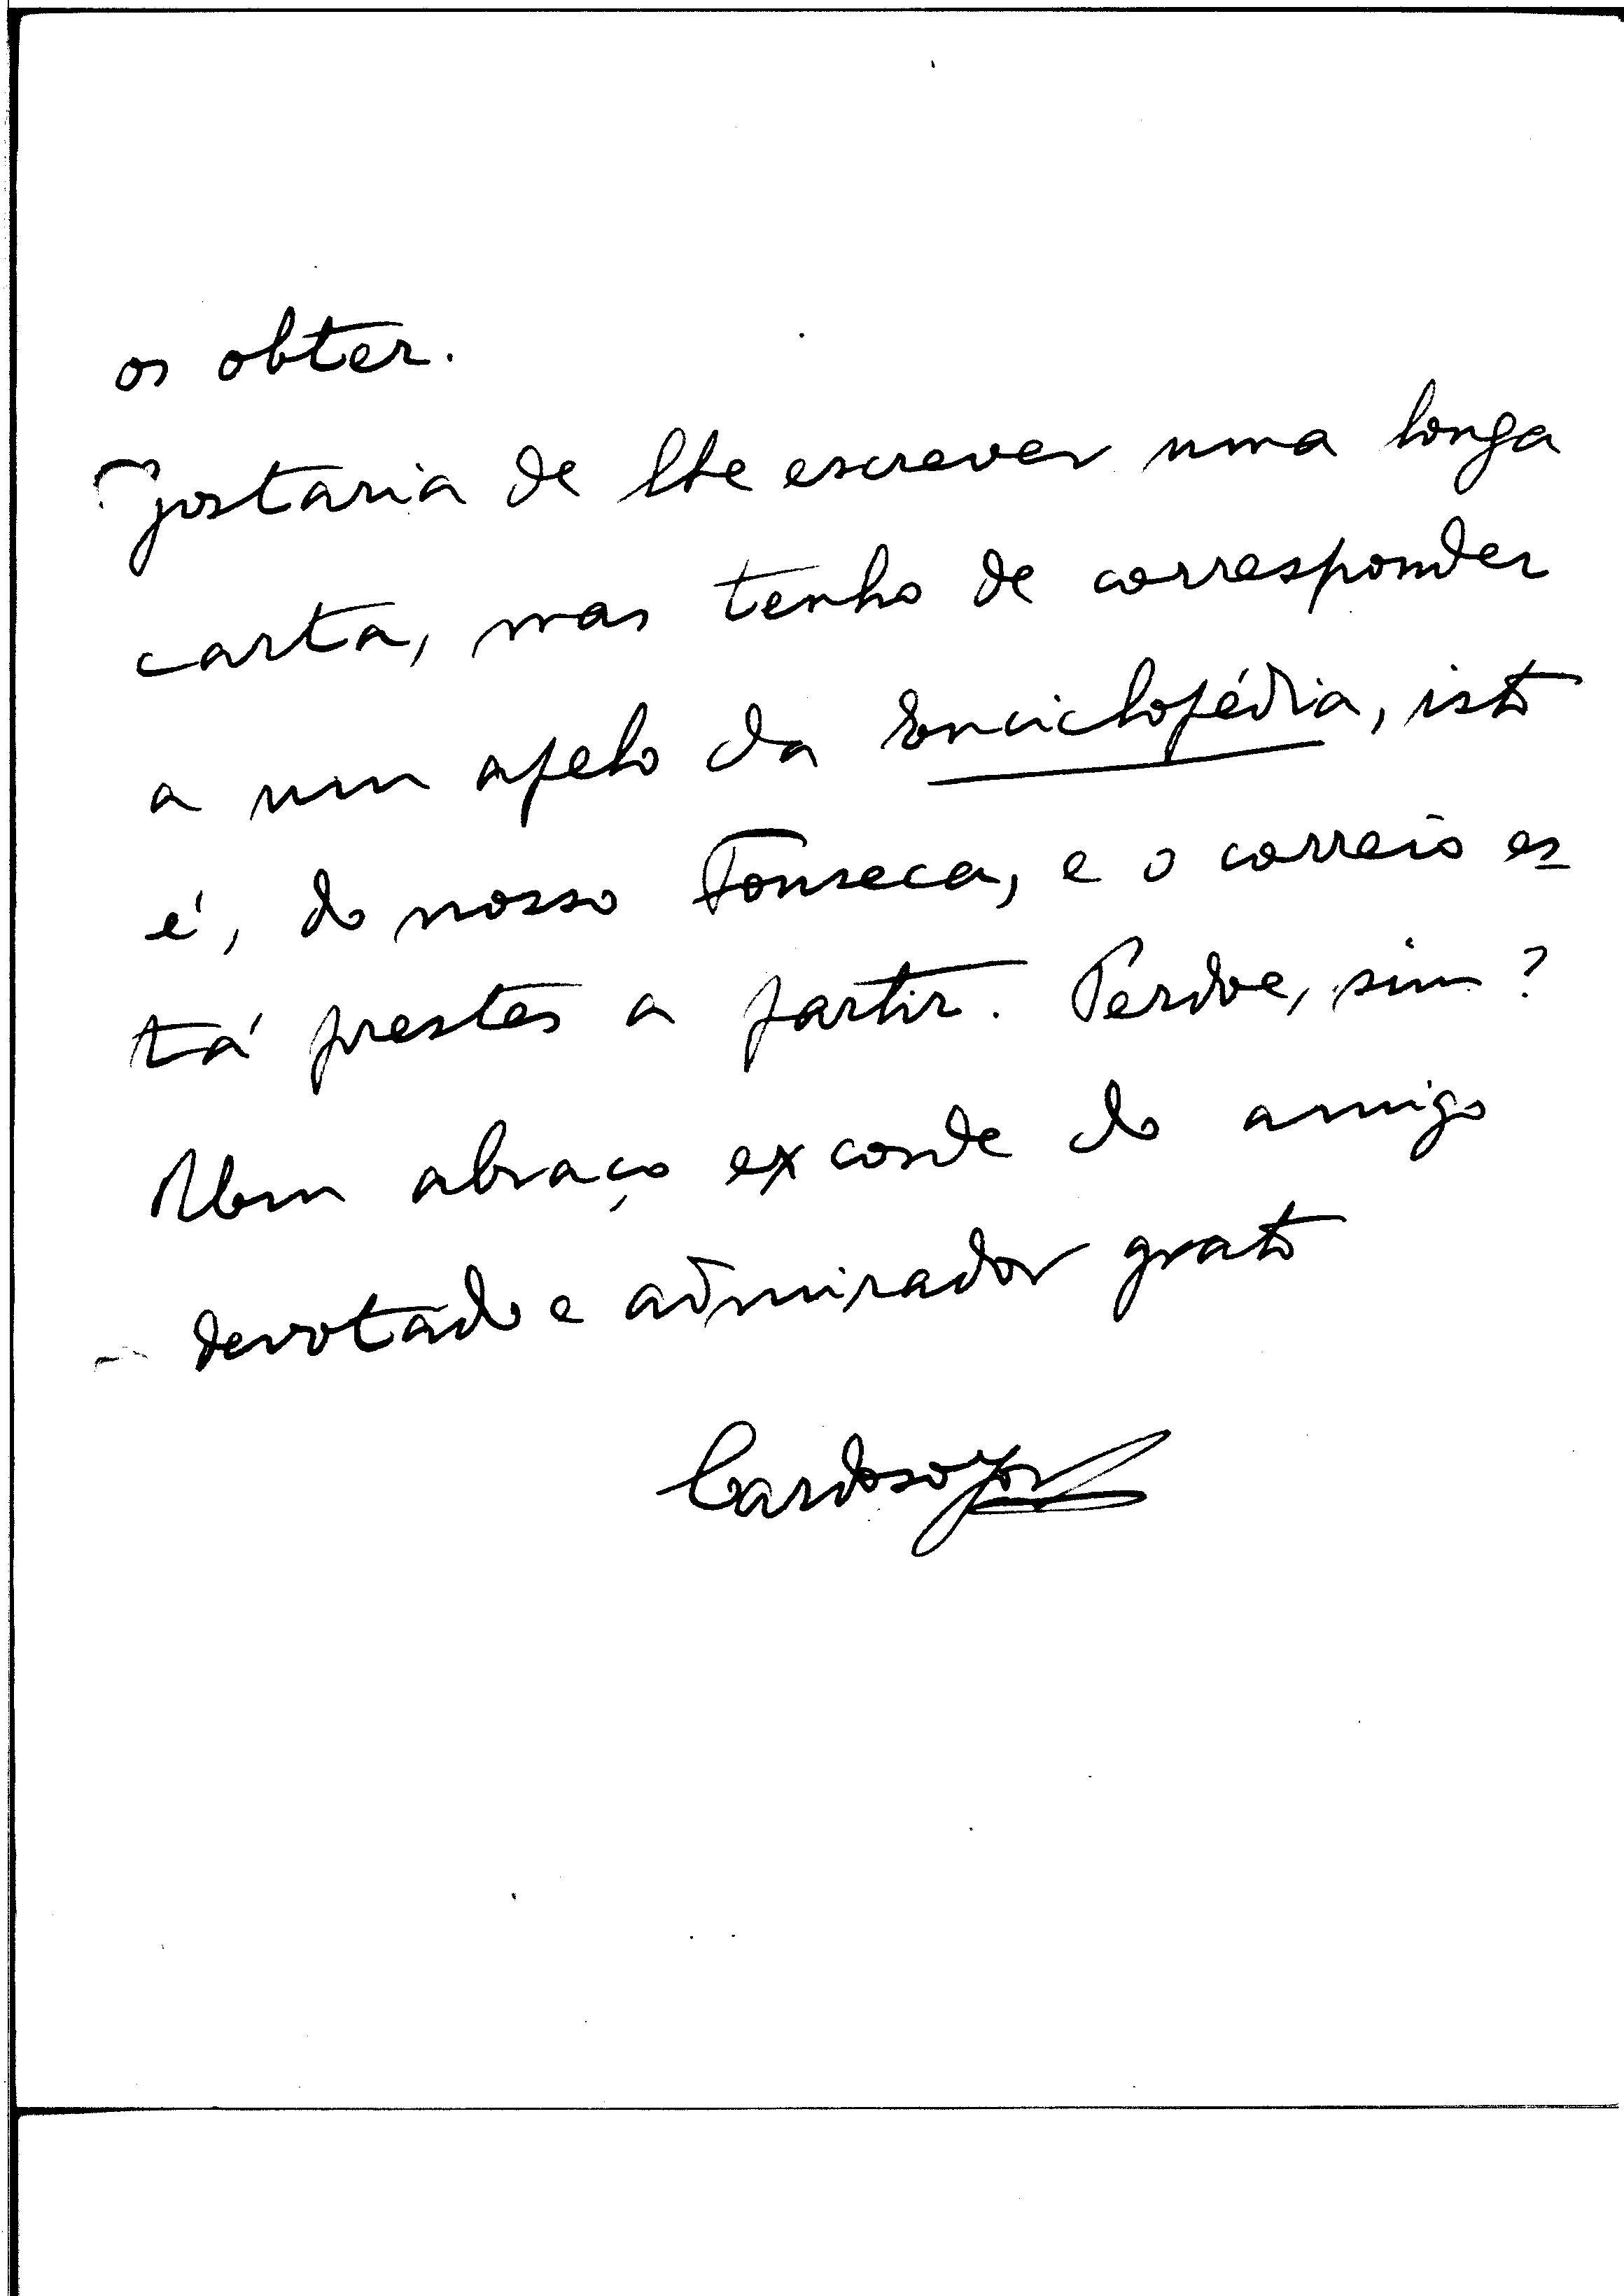 os obter.
Gostaria de lhe escrever uma longa
carta, mas tenho de corresponder
a um apelo da Enciclopédia, isto
é, do nosso Fonseca, e o correio es-
tá prestes a partir. Perdoe, sim?
Um abraço ex corde do amigo
devotado e admirador grato
Cardoso Jor